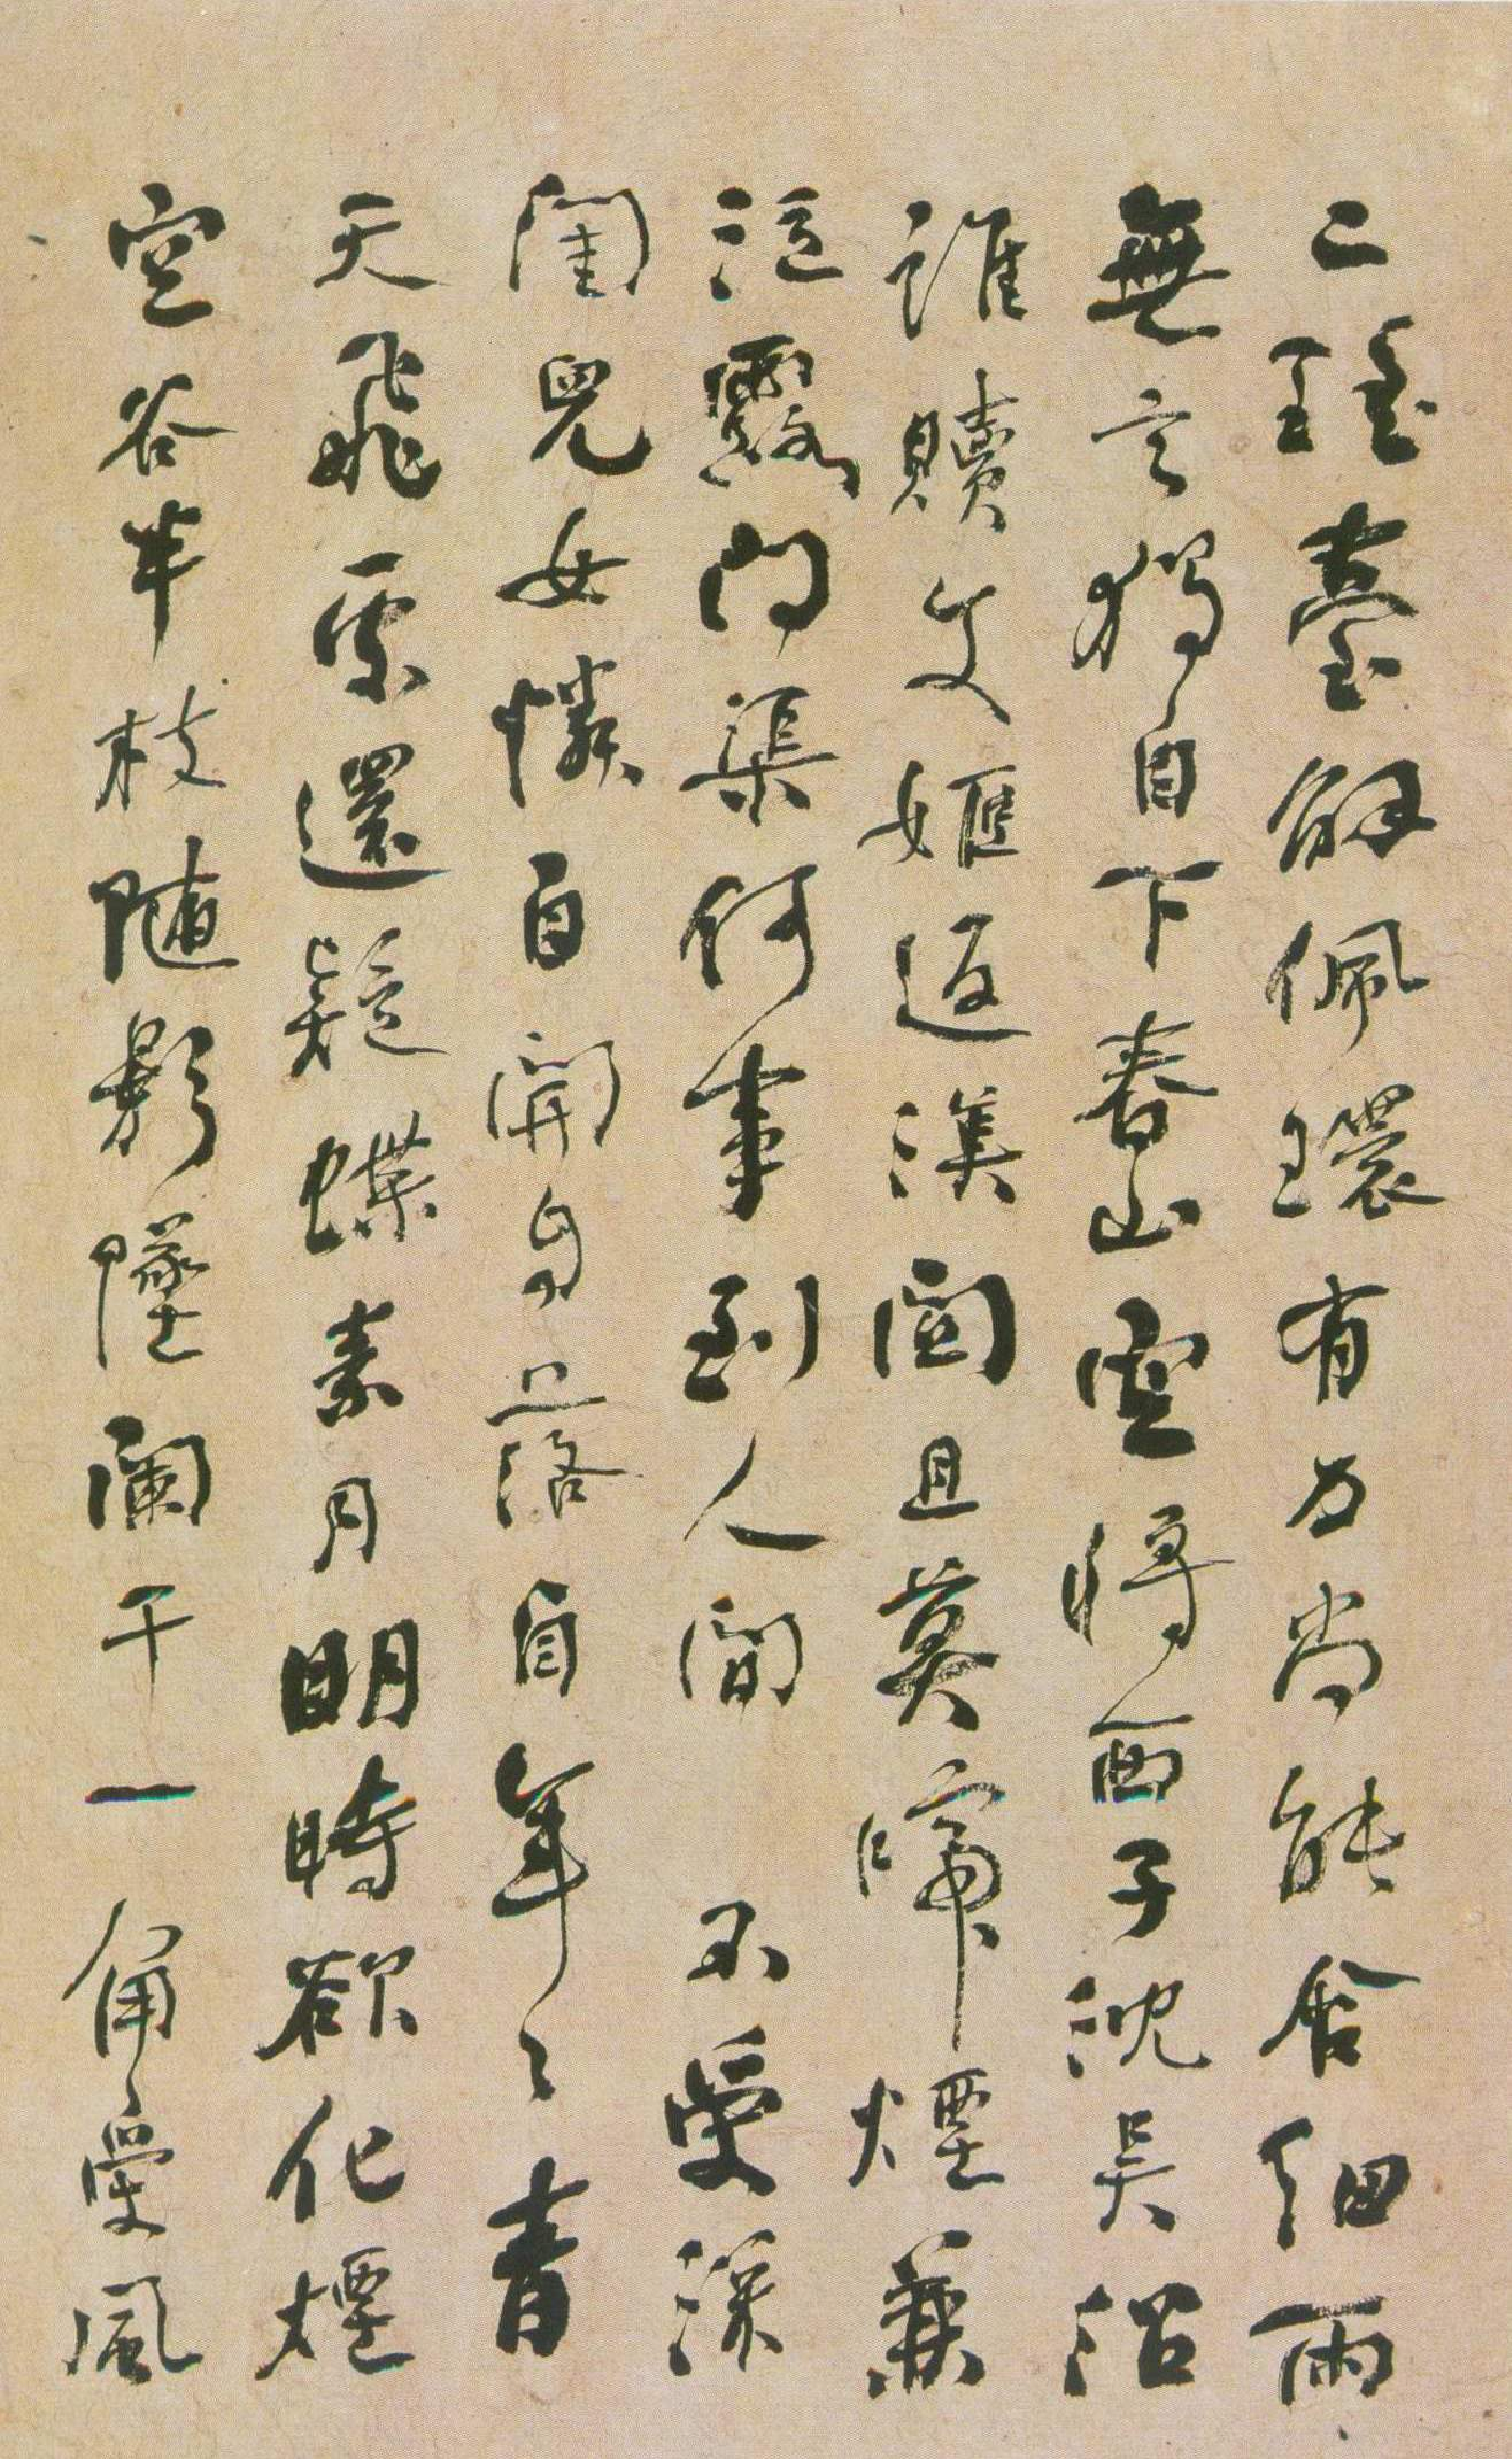 二瑤臺解佩環有力尚能含細雨
無言獨自下春山空將西子沈吳沼
誰贖文姬返漢關且莫啼煙兼
泣露問渠何事到人間　不受深
閨兒女憐自開自落自年〻青
天飛處還疑蝶素月明時欲化煙
空谷半枝隨影墜闌干一角受風